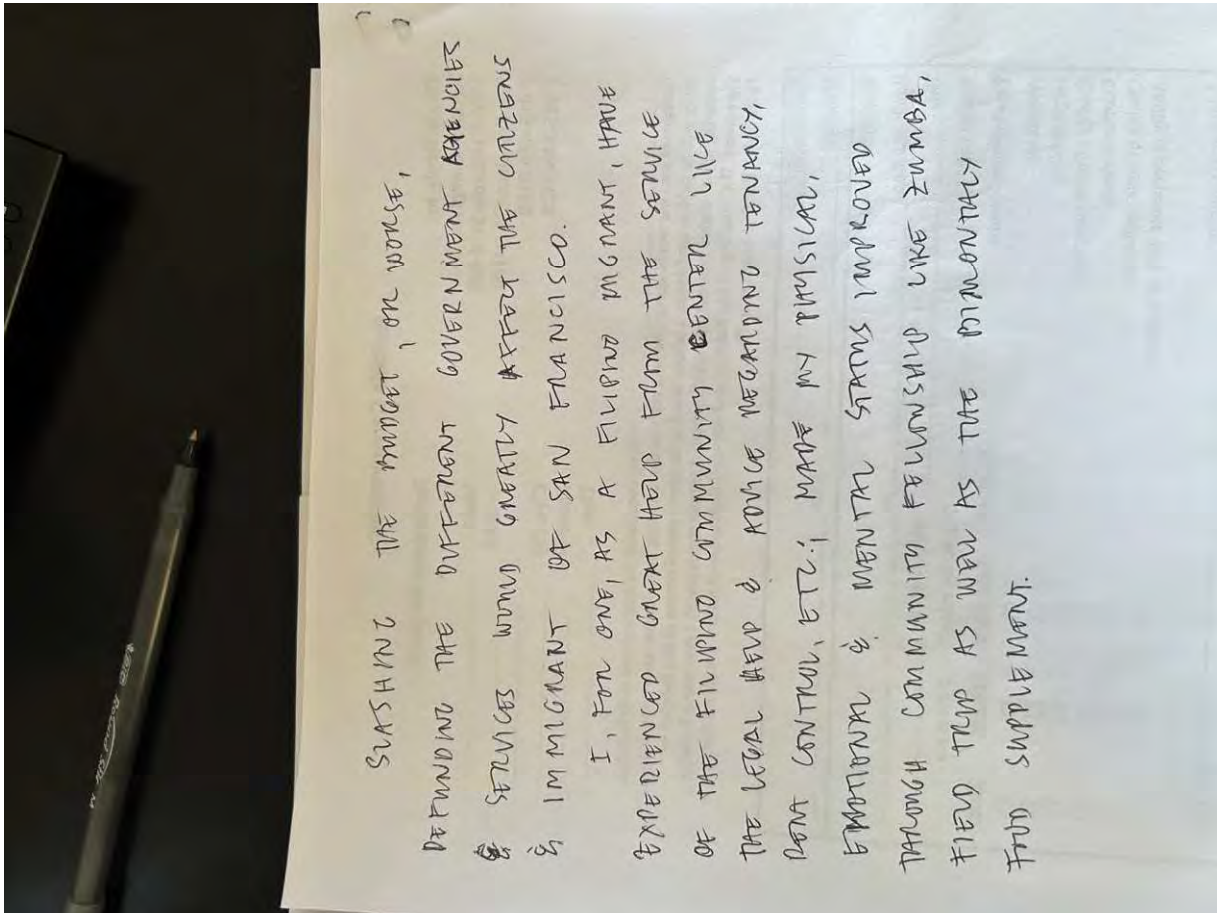 SLASHING THE BUDGET, OR WORSE,
DEFUNDING THE DIFFERENT GOVERNMENT AGENCIES
& SERVICES WOULD GREATLY AFFECT THE CITIZENS
& IMMIGRANT OF SAN FRANCISCO.
I, FOR ONE, AS A FILIPINO MIGRANT, HAVE
EXPERIENCED GREAT HELP FROM THE SERVICES
OF THE FILIPINO COMMUNITY CENTER LIKE
THE LEGAL HELP & ADVICE REGARDING TENANCY,
RENT CONTROL, ETC.; MADE MY PHYSICAL,
EMOTIONAL & MENTAL STATUS IMPROVED
THROUGH COMMUNITY FELLOWSHIP LIKE ZUMBA,
FIELD TRIP AS WELL AS THE BIMONTHLY
FOOD SUPPLEMENT.